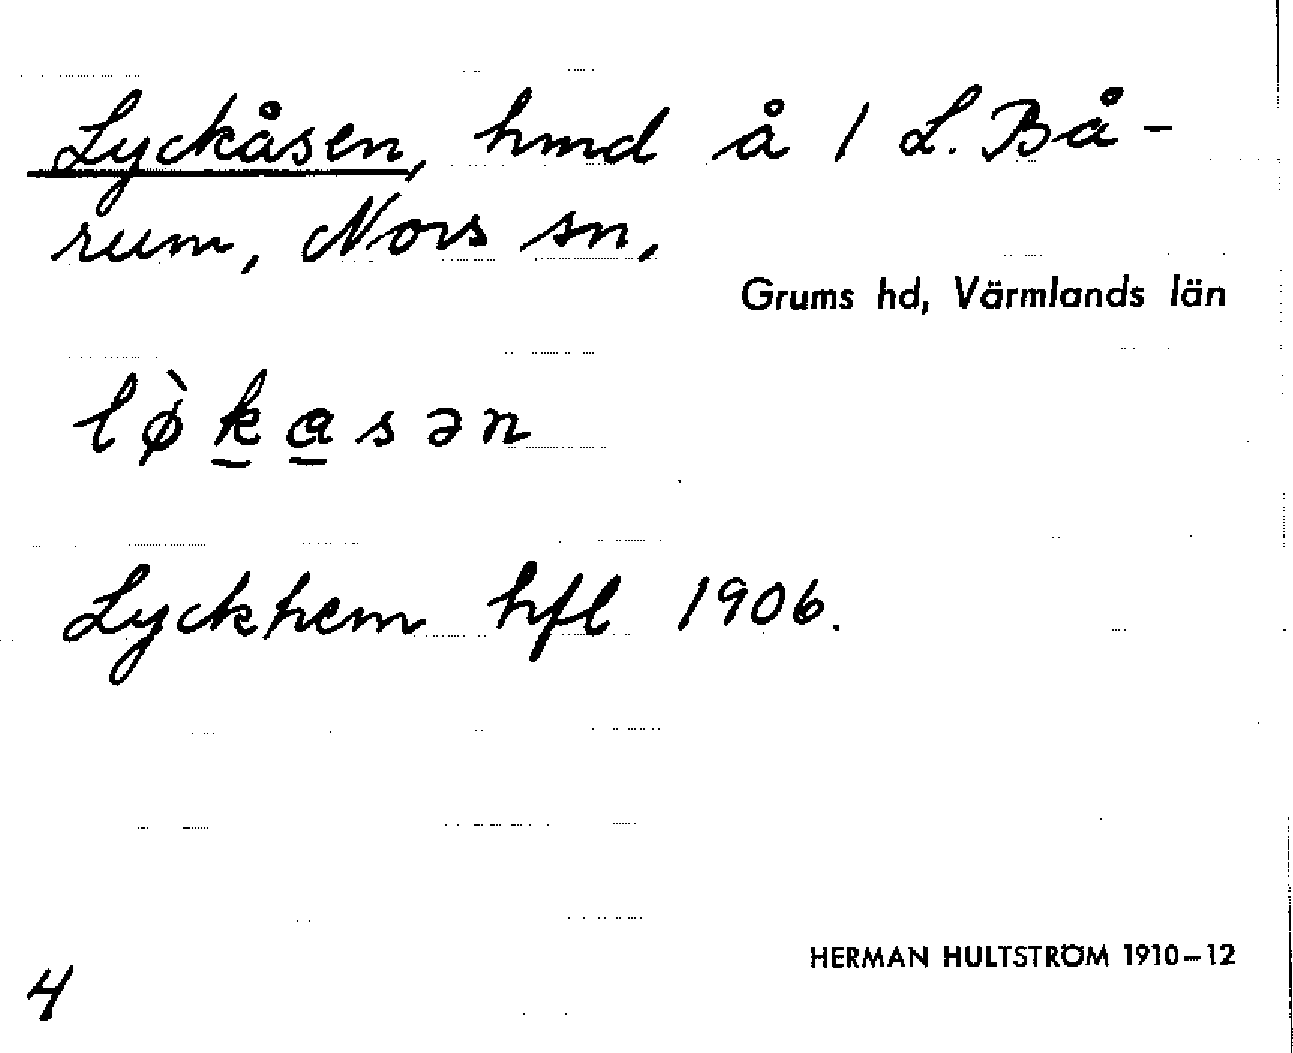 Lyckåsen, hmd å 1 L. Bå-
rum, Nors sn,
Grums hd, Värmlands län
lø̀k̲a̲sən
Lyckhem hfl 1906.
HERMAN HULTSTRÖM 1910–12
4